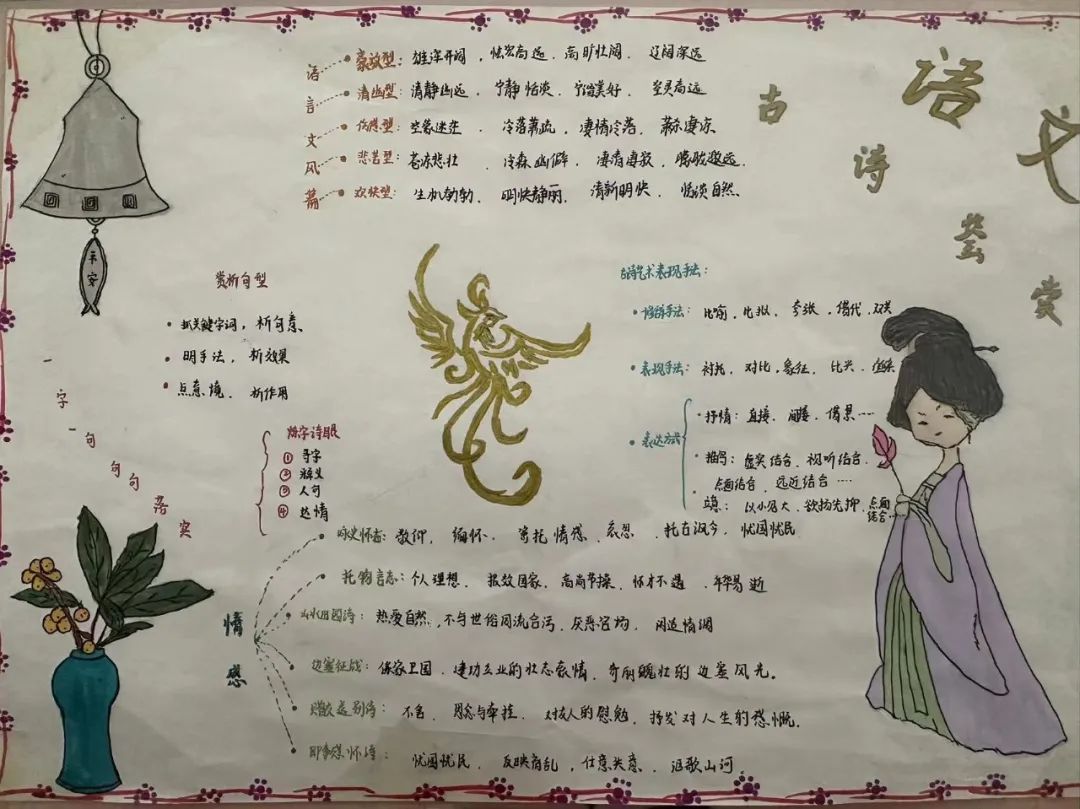 语文
古诗鉴赏
平安
语言文风篇
豪放型：雄浑开阔，恢宏高远、高旷壮阔、辽阔深远
清幽型：清静幽远、宁静恬淡、宁谧美好、空灵高远
伤感型：空蒙迷茫、冷落萧疏、凄情冷落、萧条凄凉
悲苦型：苍凉悲壮、冷森幽僻、凄清凄寂、
欢快型：生机勃勃、明快静丽、清新明快、恬淡自然
赏析句型
抓关键字词，析句意
明手法，析效果
点意境，析作用
一字一句句句落实
炼字诗眼
① 寻字
② 释义
③ 入句
④ 达情
古诗艺术表现手法：
修辞手法：比喻、比拟、夸张、借代、双关
表现手法：衬托、对比、象征、比兴、
表达方式
抒情：直接、间接、借景……
描写：虚实结合、视听结合、
点面结合、远近结合……
以小见大、欲扬先抑、点面结合…
情感
咏史怀古：敬仰，缅怀、寄托情感、哀思、托古讽今、忧国忧民
托物言志：个人理想、报效国家、高尚节操、怀才不遇、年华易逝
山水田园诗：热爱自然、不与世俗同流合污、厌恶官场、闲适情调
边塞征战：保家卫国、建功立业的壮志豪情、奇丽魄壮的边塞风光。
不舍、思念与牵挂、对友人的慰勉，抒发对人生的感慨。
即事感怀诗：忧国忧民、反映离乱，仕意失意、讴歌山河